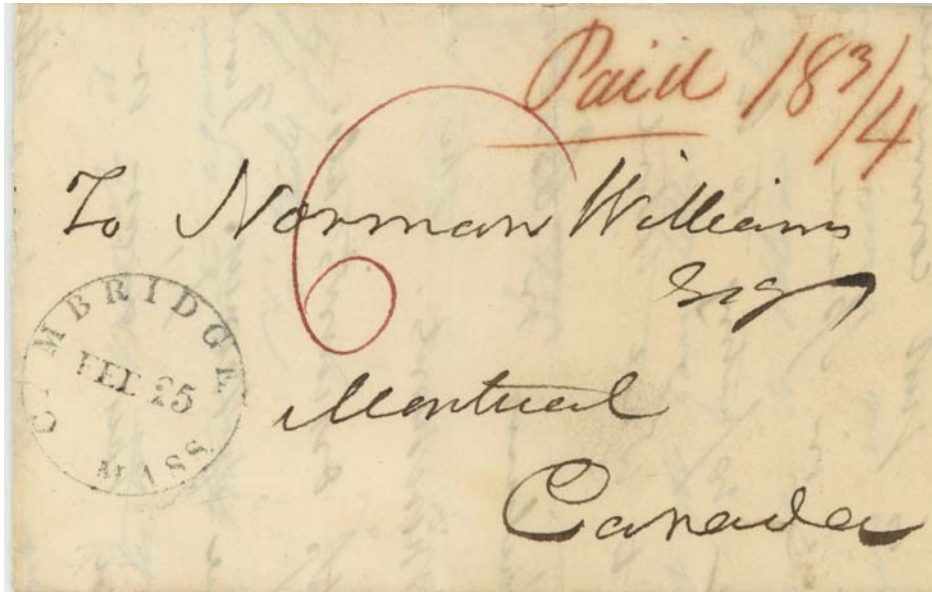 Paid 18 3/4
6
To Norman Williams
Esq
Montreal
Canada
CAMBRIDGE
FEB 25
MASS